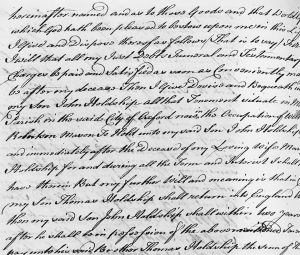 hereinafter named and as to those Goods and that Worldly
which God hath been pleased to bestow upon me in this Life
I Give and Dispose thereof as follows (That is to say) First
I will that all my Just Debts Funeral and Testamentary
Charges be paid and Satisfied as soon as Conveniently may
be after my decease Then I Give Devise and Bequeath unto
my Son John Holdship all that Tenement situate in the
Parish in the said City of Oxford near the Occupation of Will
Robinson Mason To Hold unto my said Son John Holdship
and immediately after the Decease of my Loving wife Mary
Holdship for and during all the Term and Interest I shall
have therein But my further Will and meaning is that if
my Son Thomas Holdship shall return into England
then my said Son John Holdship shall within two years
after he shall be in possession of the abovementioned
pay unto his said Brother Thomas Holdship the Sum of